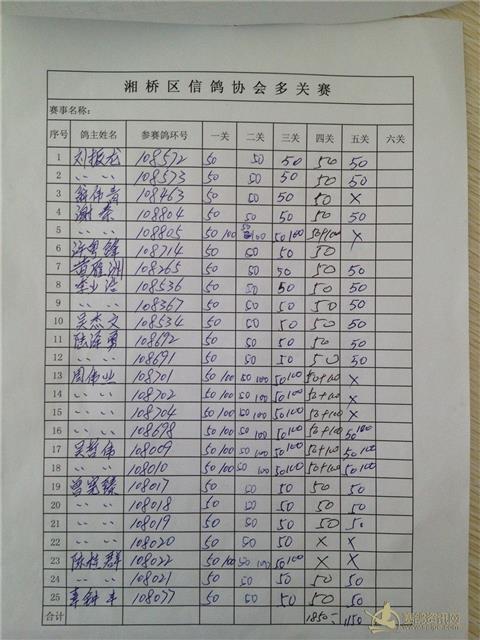 湘桥区信鸽协会多关赛
赛事名称：
序号 鸽主姓名 参赛鸽环号 一关 二关 三关 四关 五关 六关
1 刘振龙 108572 50 50 50 50 50
2 〃 〃 108573 50 50 50 50 50
3 108463 50 50 50 50 ×
4 谢秦 108804 50 50 50 50 50
5 〃 〃 108805 50 100 50 100 50 100 50+100 ×
6 许粤锋 108714 50 50 50 50
7 黄雅洲 108265 50 50 50 50 50
8 李少浩 108536 50 50 50 50 50
9 〃 〃 108367 50 50 50 50 50
10 吴杰文 108534 50 50 50 50 50
11 陆泽勇 108692 50 50 50 50 50
12 〃 〃 108691 50 50 50 50 50
13 周伟业 108701 50 100 50 100 50 100 50+100 ×
14 〃 〃 108702 50 100 50 100 50 100 50+100 ×
15 〃 〃 108704 50 100 50 100 50 100 50+100 ×
16 〃 〃 108698 50 100 50 100 50 100 50+100 50 100
17 吴哲伟 108009 50 100 50 100 50 100 50+100 50 100
18 〃 〃 108010 50 100 50 100 50 100 50+100 50 100
19 曾宪臻 108017 50 50 50 50 50
20 〃 〃 108018 50 50 50 50 50
21 〃 〃 108019 50 50 50 50 50
22 〃 〃 108020 50 50 50 × ×
23 陈桂群 108022 50 100 50 100 50 100 × ×
24 〃 〃 108021 50 50 50 50 50
25 108077 50 50 50 50 50
合计 1850- 1150